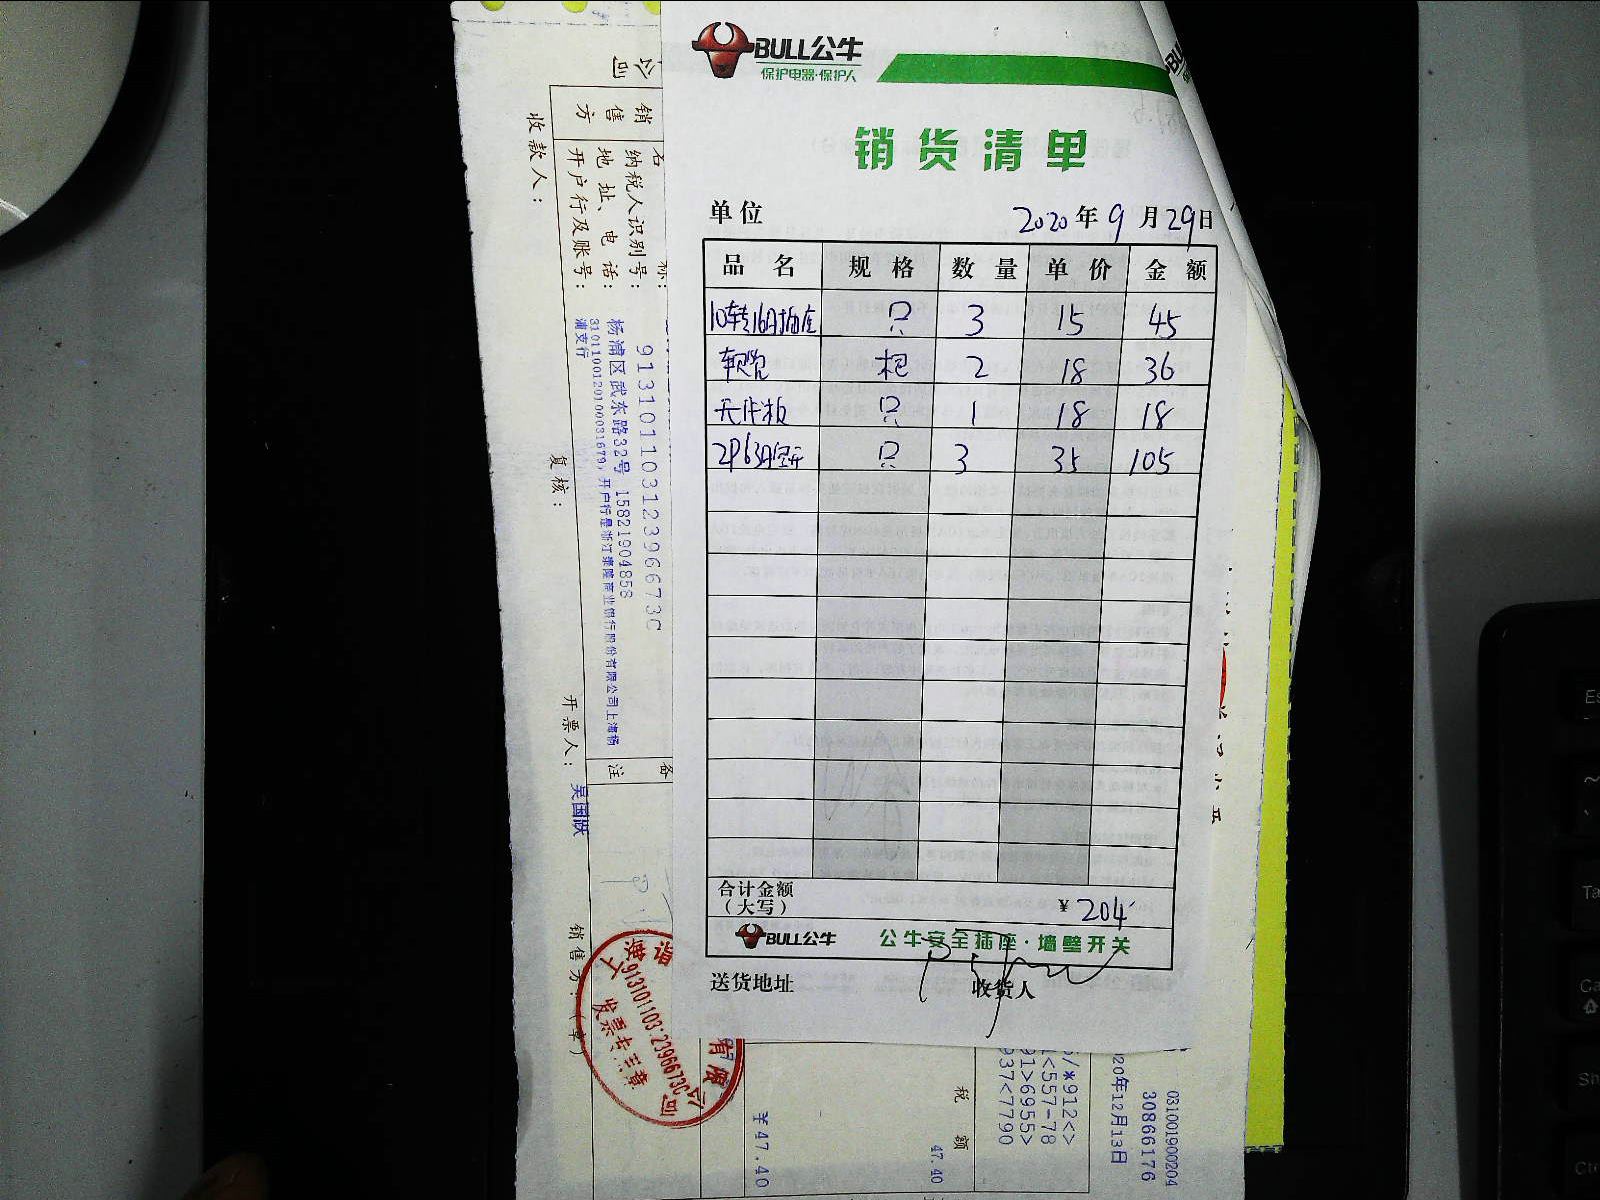 BULL公牛
保护电器·保护人
销货清单
单位 2020年9月29日
品名 规格 数量 单价 金额
10转16A插座 只 3 15 45
软管 根 2 18 36
只 1 18 18
2P63A空开 只 3 35 105
合计金额
(大写) ¥204
BULL公牛 公牛安全插座·墙壁开关
送货地址 收货人
公司
销售方
名称:
纳税人识别号: 91310110312396673C
地址、电话: 杨浦区武东路32号 15821904858
开户行及账号: 31011001201000031679, 开户行是浙江泰隆商业银行股份有限公司上海杨浦支行
收款人:
复核:
开票人: 吴国跃
销售方:(章)
备注
发票专用章
税额
47.40
¥47.40
/*912<>
<557-78
91>6955>
937<7790
031001900204
30866176
20年12月13日